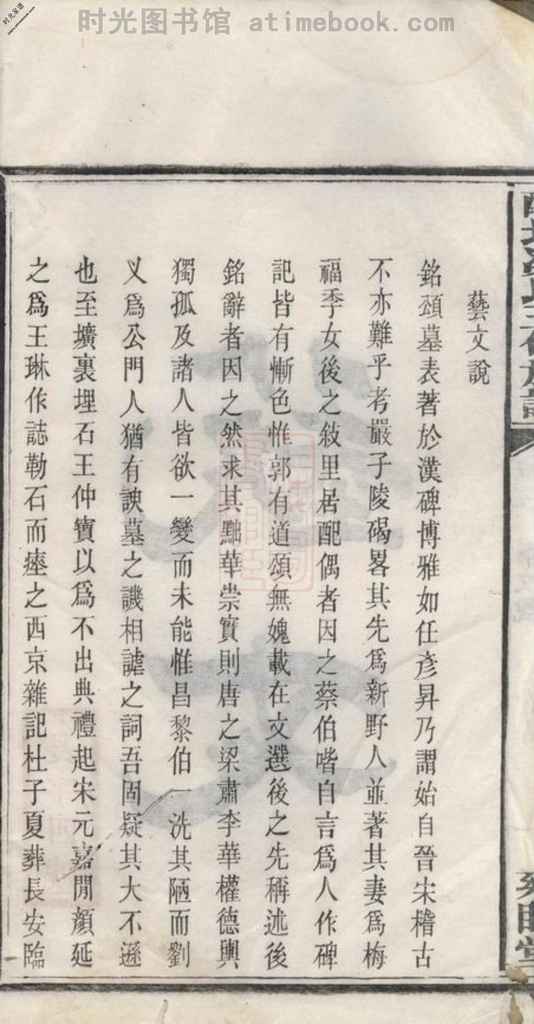 时光图书馆 - atimebook.com
藝文說
銘頌墓表著於漢碑博雅如任彥昇乃謂始自晉宋稽古
不亦難乎考嚴子陵碣畧其先爲新野人並著其妻爲梅
福季女後之敍里居配偶者因之蔡伯喈自言爲人作碑
記皆有慚色惟郭有道頌無媿載在文選後之先稱述後
銘辭者因之然求其黜華崇實則唐之梁肅李華權德輿
獨孤及諸人皆欲一變而未能惟昌黎伯一洗其陋而劉
乂爲公門人猶有諛墓之譏相謔之詞吾固疑其大不遜
也至壙裏埋石王仲寶以爲不出典禮起宋元嘉閒顏延
之爲王琳作誌勒石而瘞之西京雜記杜子夏葬長安臨